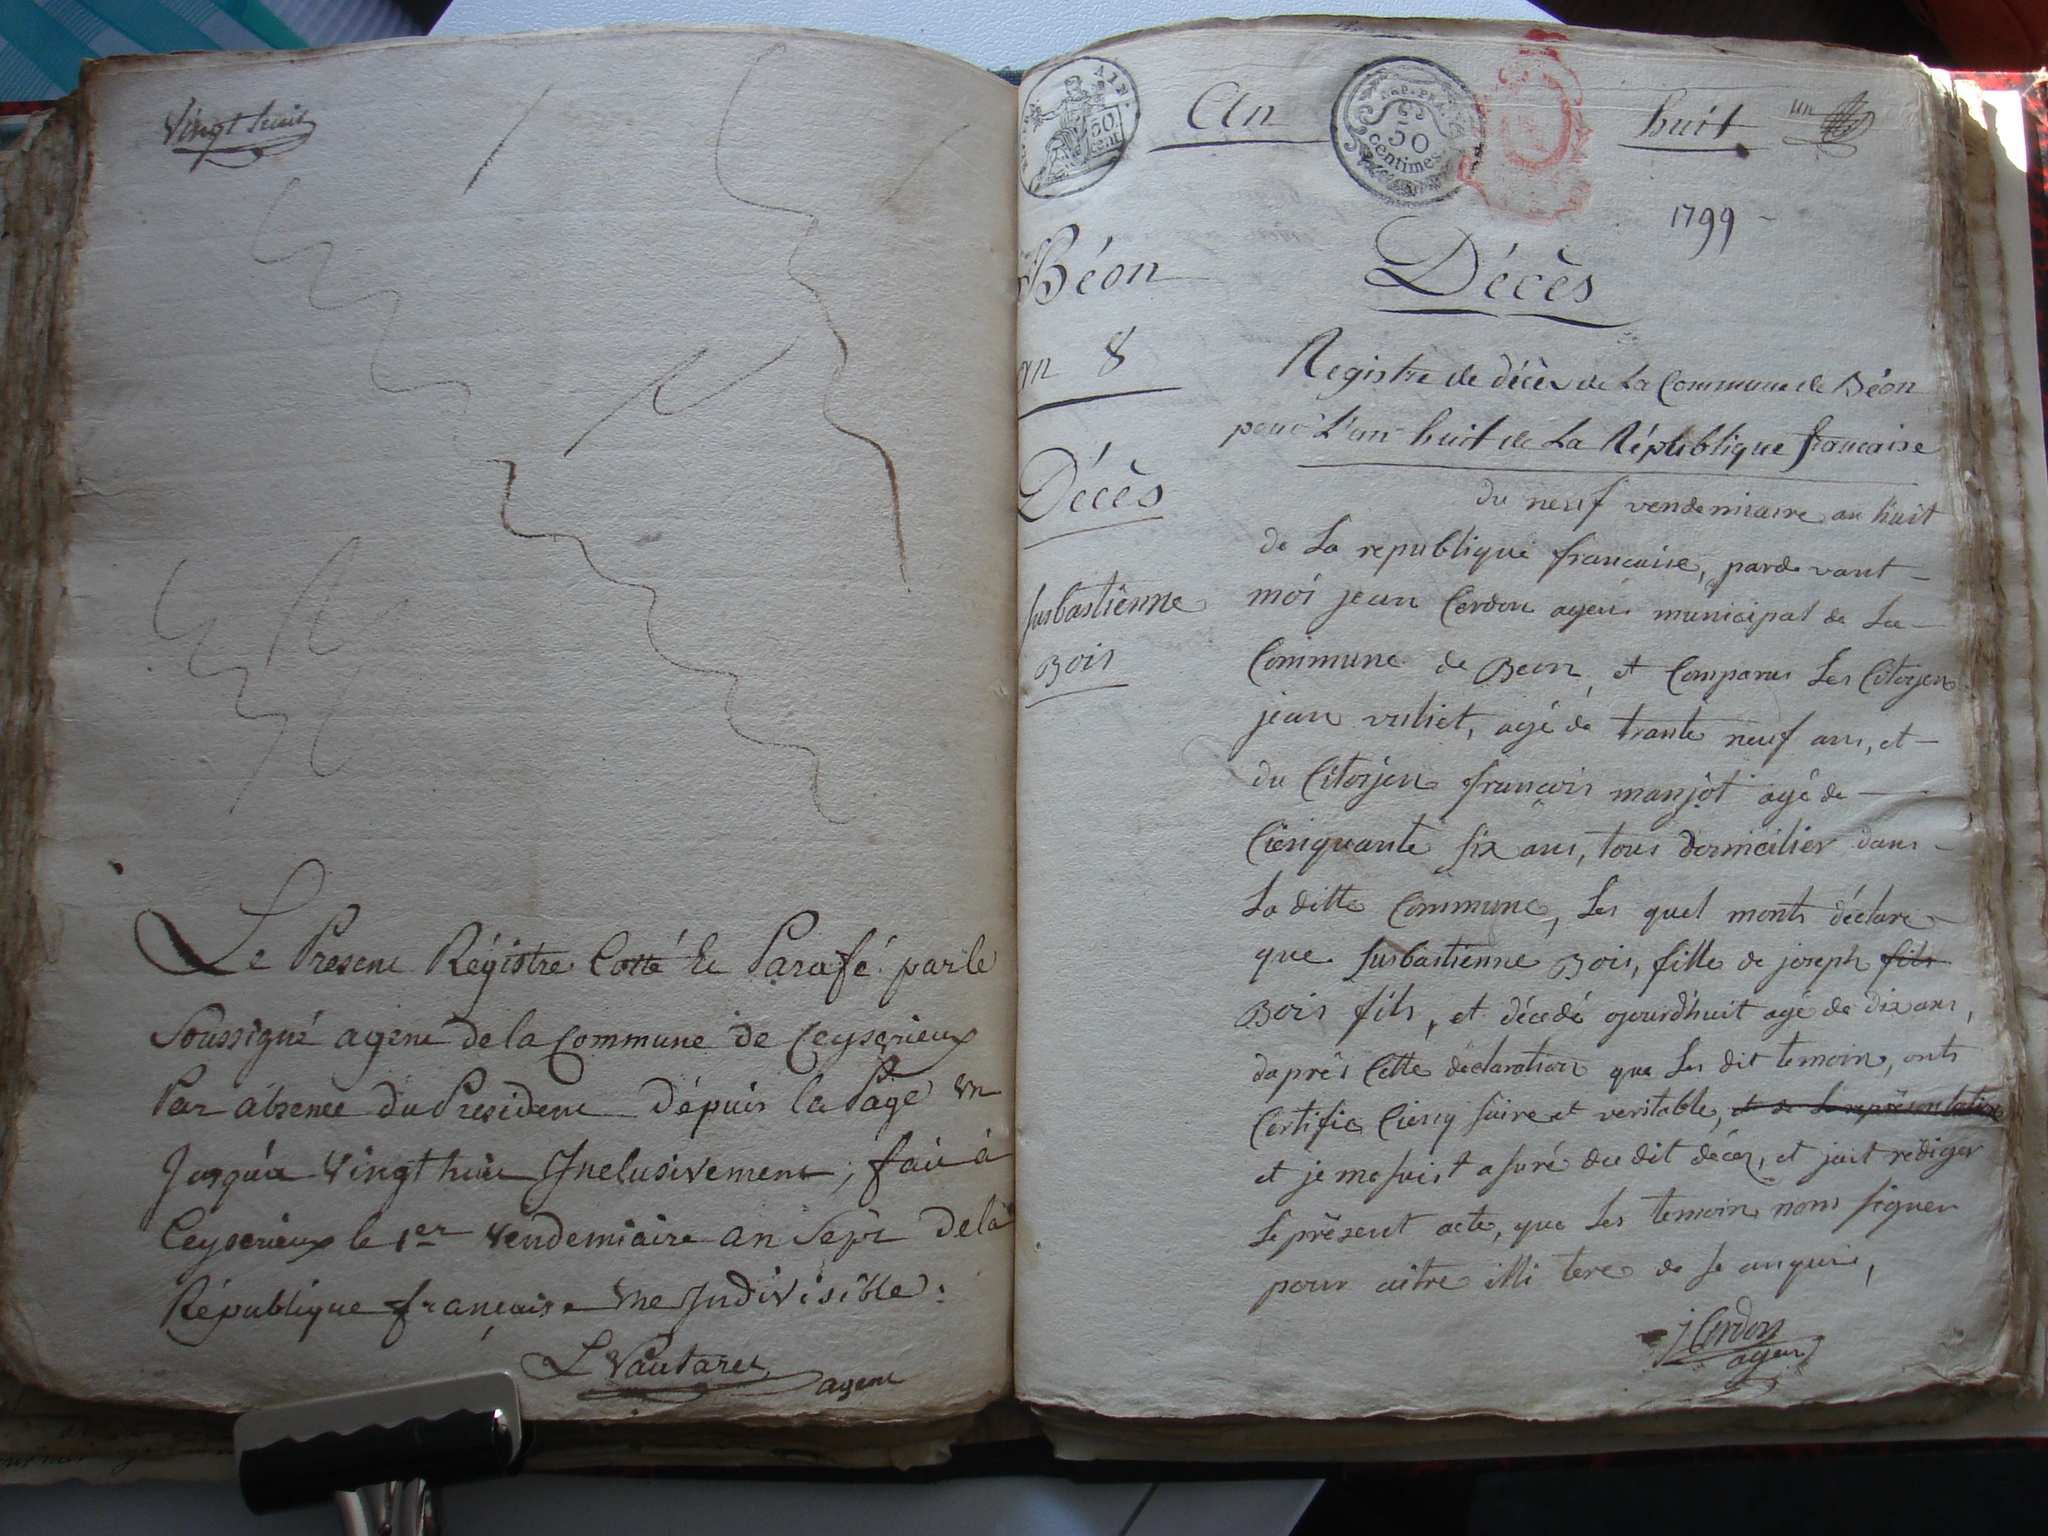 Vingt huit
Le Présent Régistre Cotté Et Parafé par le
Soussigné agent de la Commune de Ceyserieux
Par absence du Président dépuis la Page un
Jusqu'a Vingt huit Inclusivement ; fait à
Ceyserieux le 1er Vendemiaire an Sept de la
République française une Indivisible.
L Vautaret
agent
AIN.
50
cent
An
50
centimes
huit
un
1799
Béon
an 8
Décès
Susbastienne
Bois
Décès
Registre de décès de La Commune de Béon
pour L'an huit de La République française
du neuf vendemiaire an huit
de La republique francaise, pardevant
moi jean Cerdon agent municipal de La
Commune de Beon, et Comparus Les Citoyen
jean vuliet, agé de trante neuf ans, et
du Citoyen françois manjot agé de
Cienquante six ans, tous domicilier dans
La ditte Commune, Les quel monts déclare
que Susbastienne Bois, fille de joseph fils
Bois fils, et décedé ojourdhuit agé de dix ans,
daprés Cette declaration que Les dit temoin, onts
Certifie Cienq saire et veritable, et de La representation
et je me suis t a suré du dit décez, et jait rédiger
Le présent acte, que Les temoin nons signer
pour aitre illi tere de se anquis,
j Cerdon
agent